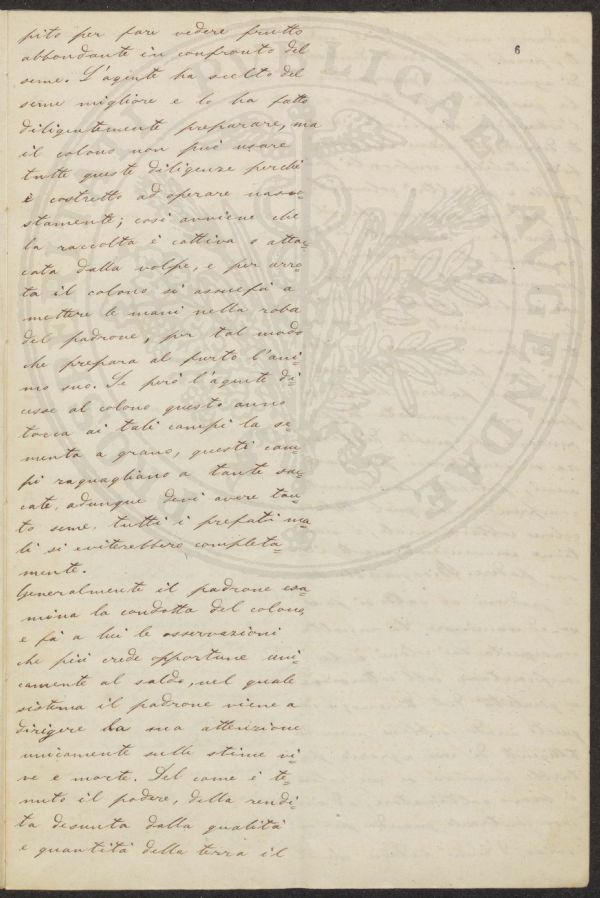 6
pito per fare vedere frutto
abbondante in confronto del
seme. L'agente ha scelto del
seme migliore e lo ha fatto
diligentemente preparare, ma
il colono non può usare
tutte queste diligenze perchè
è costretto ad operare nasco=
stamente; così avviene che
la raccolta è cattiva o attac=
cata dalla volpe, e per arro=
ta il colono si assuefà a
mettere le mani nella roba
del padrone, per tal modo
che prepara al furto l'ani=
mo suo. Se però l'agente di=
cesse al colono questo anno
tocca ai tali campi la se=
menta a grano, questi cam=
pi raguagliano a tante sac=
cate, adunque devi avere tan=
to seme, tutti i prefati ma=
li si eviterebbero completa=
mente.
Generalmente il padrone esa=
mina la condotta del colono,
e fà a lui le osservazioni
che più crede opportune uni=
camente al saldo, nel quale
sistema il padrone viene a
dirigere la sua attenzione
unicamente sulle stime vi=
ve e morte. Del come è te=
nuto il podere, della rendi=
ta desunta dalla qualità
e quantità della terra il
PUBLICAE AUGENDAE